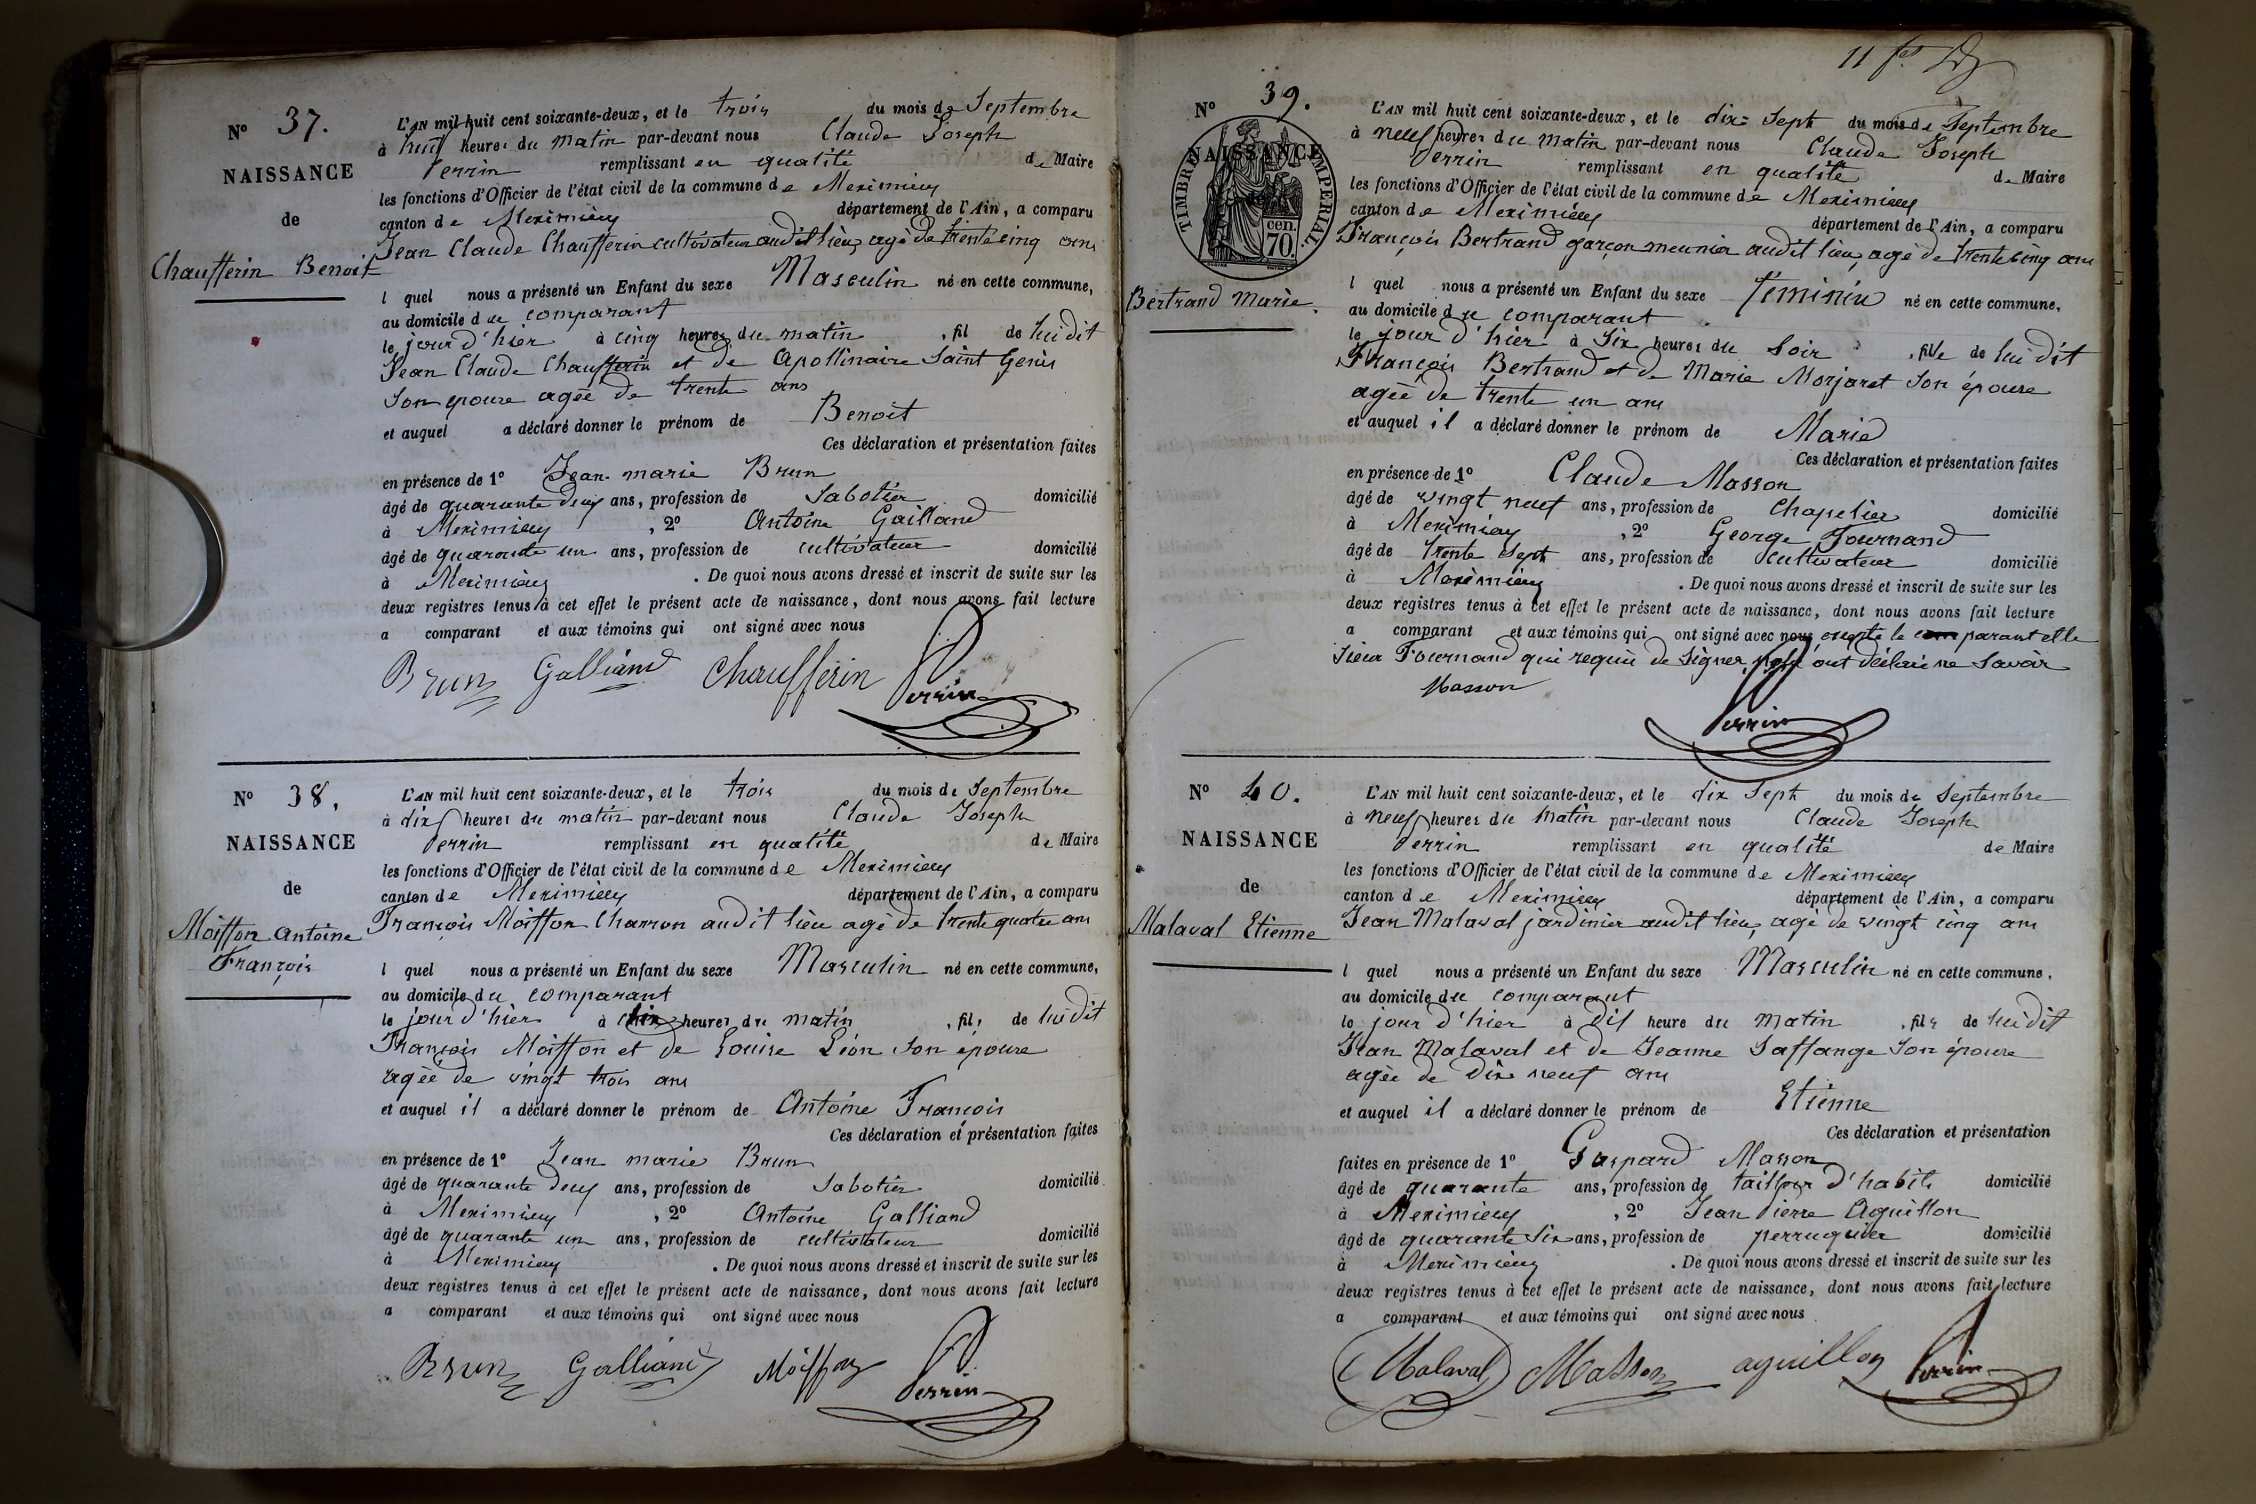 11 fet
N° 37.
NAISSANCE
de
Chaufferin Benoit
L'AN mil huit cent soixante-deux, et le trois du mois de Septembre
à huit heures du matin par-devant nous Claude Joseph
Perrin remplissant en qualité de Maire
les fonctions d'Officier de l'état civil de la commune de Meximieux
canton de Meximieux département de l'Ain, a comparu
Jean Claude Chaufferin cultivateur audit lieu, agé de trente cinq ans
l quel nous a présenté un Enfant du sexe Masculin né en cette commune,
au domicile du comparant
le jour d'hier à cinq heures du matin , fil de lui dit
Jean Claude Chaufferin et de Apollinaire Saint Genis
son epouse agée de trente ans
et auquel a déclaré donner le prénom de Benoit
Ces déclaration et présentation faites
en présence de 1° Jean marie Brun
âgé de quarante deux ans, profession de Sabotier domicilié
à Meximieux , 2° Antoine Galliand
âgé de quarante un ans, profession de cultivateur domicilié
à Meximieux . De quoi nous avons dressé et inscrit de suite sur les
deux registres tenus à cet effet le présent acte de naissance, dont nous avons fait lecture
a comparant et aux témoins qui ont signé avec nous
Brun Galliand Chaufferin Perrin
N° 38.
NAISSANCE
de
Moiffon Antoine
François
L'AN mil huit cent soixante-deux, et le trois du mois de Septembre
à dix heures du matin par-devant nous Claude Joseph
Perrin remplissant en qualité de Maire
les fonctions d'Officier de l'état civil de la commune de Meximieux
canton de Meximieux département de l'Ain, a comparu
François Moiffon Charron audit lieu agé de trente quatre ans
l quel nous a présenté un Enfant du sexe Masculin né en cette commune,
au domicile du comparant
le jour d'hier à heures du matin , fils de lui dit
François Moiffon et de Louise Léon son épouse
agée de vingt trois ans
et auquel il a déclaré donner le prénom de Antoine François
Ces déclaration et présentation faites
en présence de 1° Jean marie Brun
âgé de quarante deux ans, profession de Sabotier domicilié
à Meximieux , 2° Antoine Galliand
âgé de quarante un ans, profession de cultivateur domicilié
à Meximieux . De quoi nous avons dressé et inscrit de suite sur les
deux registres tenus à cet effet le présent acte de naissance, dont nous avons fait lecture
a comparant et aux témoins qui ont signé avec nous
Brun Galliand Moiffon Perrin
N° 39.
NAISSANCE
TIMBRE IMPERIAL.
70. cen.
Bertrand Marie.
L'AN mil huit cent soixante-deux, et le dix-Sept du mois de Septembre
à neuf heures du matin par-devant nous Claude Joseph
Perrin remplissant en qualité de Maire
les fonctions d'Officier de l'état civil de la commune de Meximieux
canton de Meximieux département de l'Ain, a comparu
François Bertrand garçon meunier audit lieu, agé de trente cinq ans
l quel nous a présenté un Enfant du sexe féminin né en cette commune,
au domicile du comparant
le jour d'hier à Six heures du soir , fille de lui dit
François Bertrand et de Marie Morjaret son épouse
agée de trente un ans
et auquel il a déclaré donner le prénom de Marie
Ces déclaration et présentation faites
en présence de 1° Claude Masson
âgé de vingt neuf ans, profession de Chapelier domicilié
à Meximieux , 2° George Fournand
âgé de trente sept ans, profession de Cultivateur domicilié
à Meximieux . De quoi nous avons dressé et inscrit de suite sur les
deux registres tenus à cet effet le présent acte de naissance, dont nous avons fait lecture
a comparant et aux témoins qui ont signé avec nous excepté le comparant et le
sieur Fournand qui requis de signer, ont déclaré ne savoir
Masson
Perrin
N° 40.
NAISSANCE
de
Malaval Etienne
L'AN mil huit cent soixante-deux, et le dix Sept du mois de Septembre
à neuf heures du matin par-devant nous Claude Joseph
Perrin remplissant en qualité de Maire
les fonctions d'Officier de l'état civil de la commune de Meximieux
canton de Meximieux département de l'Ain, a comparu
Jean Malaval jardinier audit lieu, agé de vingt cinq ans
l quel nous a présenté un Enfant du sexe Masculin né en cette commune,
au domicile du comparant
le jour d'hier à dix heure du matin , fils de lui dit
Jean Malaval et de Jeanne Saffange son épouse
agée de dix neuf ans
et auquel il a déclaré donner le prénom de Etienne
Ces déclaration et présentation
faites en présence de 1° Gaspard Masson
âgé de quarante ans, profession de tailleur d'habits domicilié
à Meximieux , 2° Jean Pierre Aguillon
âgé de quarante six ans, profession de perruquier domicilié
à Meximieux . De quoi nous avons dressé et inscrit de suite sur les
deux registres tenus à cet effet le présent acte de naissance, dont nous avons fait lecture
a comparant et aux témoins qui ont signé avec nous
Malaval Masson aguillon Perrin